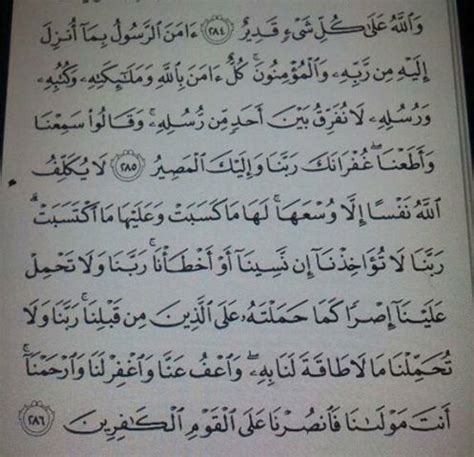 وَاللَّهُ عَلَىٰ كُلِّ شَيْءٍ قَدِيرٌ ﴿٢٨٤﴾ ءَامَنَ الرَّسُولُ بِمَا أُنزِلَ
إِلَيْهِ مِن رَّبِّهِ وَالْمُؤْمِنُونَ ۚ كُلٌّ ءَامَنَ بِاللَّهِ وَمَلَٰٓئِكَتِهِ وَكُتُبِهِ
وَرُسُلِهِ لَا نُفَرِّقُ بَيْنَ أَحَدٍ مِّن رُّسُلِهِ ۚ وَقَالُوا سَمِعْنَا
وَأَطَعْنَا ۖ غُفْرَانَكَ رَبَّنَا وَإِلَيْكَ الْمَصِيرُ ﴿٢٨٥﴾ لَا يُكَلِّفُ
اللَّهُ نَفْسًا إِلَّا وُسْعَهَا ۚ لَهَا مَا كَسَبَتْ وَعَلَيْهَا مَا اكْتَسَبَتْ ۗ
رَبَّنَا لَا تُؤَاخِذْنَا إِن نَّسِينَا أَوْ أَخْطَأْنَا ۚ رَبَّنَا وَلَا تَحْمِلْ
عَلَيْنَا إِصْرًا كَمَا حَمَلْتَهُ عَلَى الَّذِينَ مِن قَبْلِنَا ۚ رَبَّنَا وَلَا
تُحَمِّلْنَا مَا لَا طَاقَةَ لَنَا بِهِ ۖ وَاعْفُ عَنَّا وَاغْفِرْ لَنَا وَارْحَمْنَا ۚ
أَنتَ مَوْلَىٰنَا فَانصُرْنَا عَلَى الْقَوْمِ الْكَٰفِرِينَ ﴿٢٨٦﴾